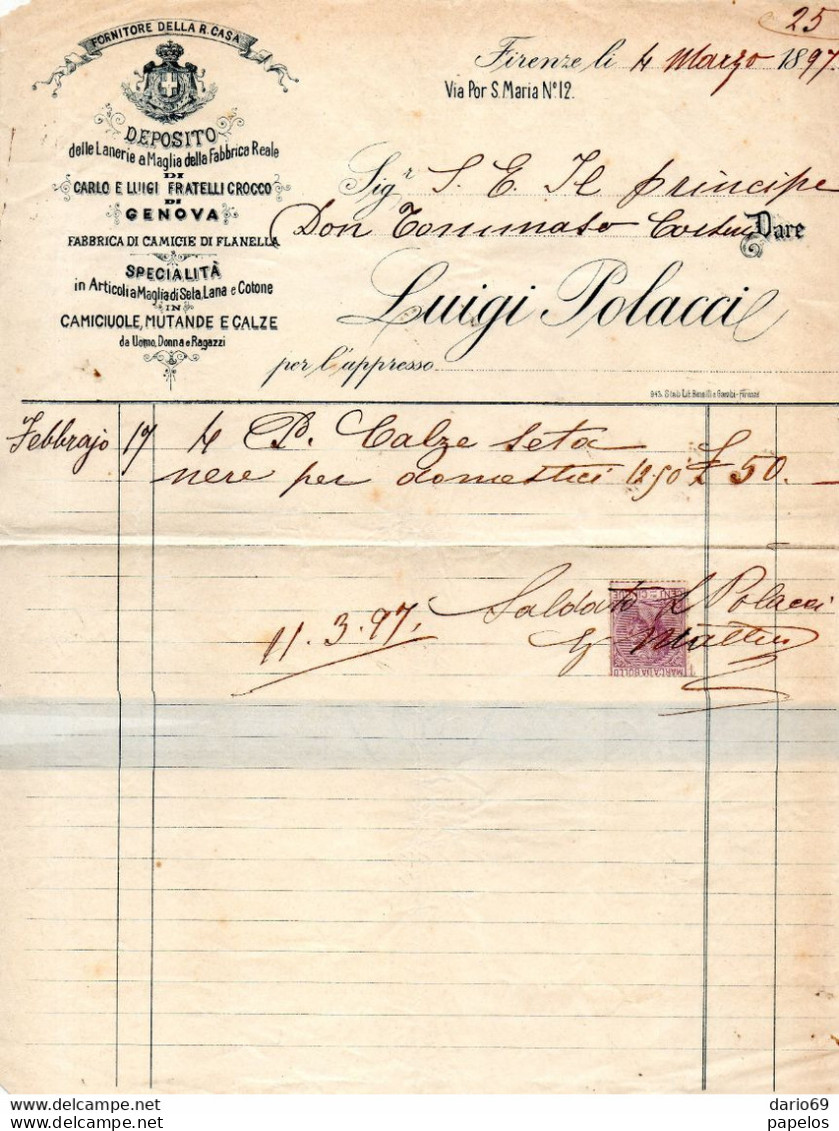 25
FORNITORE DELLA R. CASA
DEPOSITO
delle Lanerie a Maglia della Fabbrica Reale
DI
CARLO E LUIGI FRATELLI CROCCO
DI
GENOVA
FABBRICA DI CAMICIE DI FLANELLA
SPECIALITÀ
in Articoli a Maglia di Seta, Lana e Cotone
IN
CAMICIUOLE, MUTANDE E CALZE
da Uomo, Donna e Ragazzi
Firenze li 4 Marzo 1897.
Via Por S. Maria N° 12.
Sigr S. E. Il principe
Don Tommaso Corsini Dare
Luigi Polacci
per l'appresso
Febbrajo 17 4 P. Calze seta
nere per domestici 12.50 £ 50.—
Saldato L Polacci
11.3.97.
MARCA DA BOLLO
delcampe.net
dario69
papelos